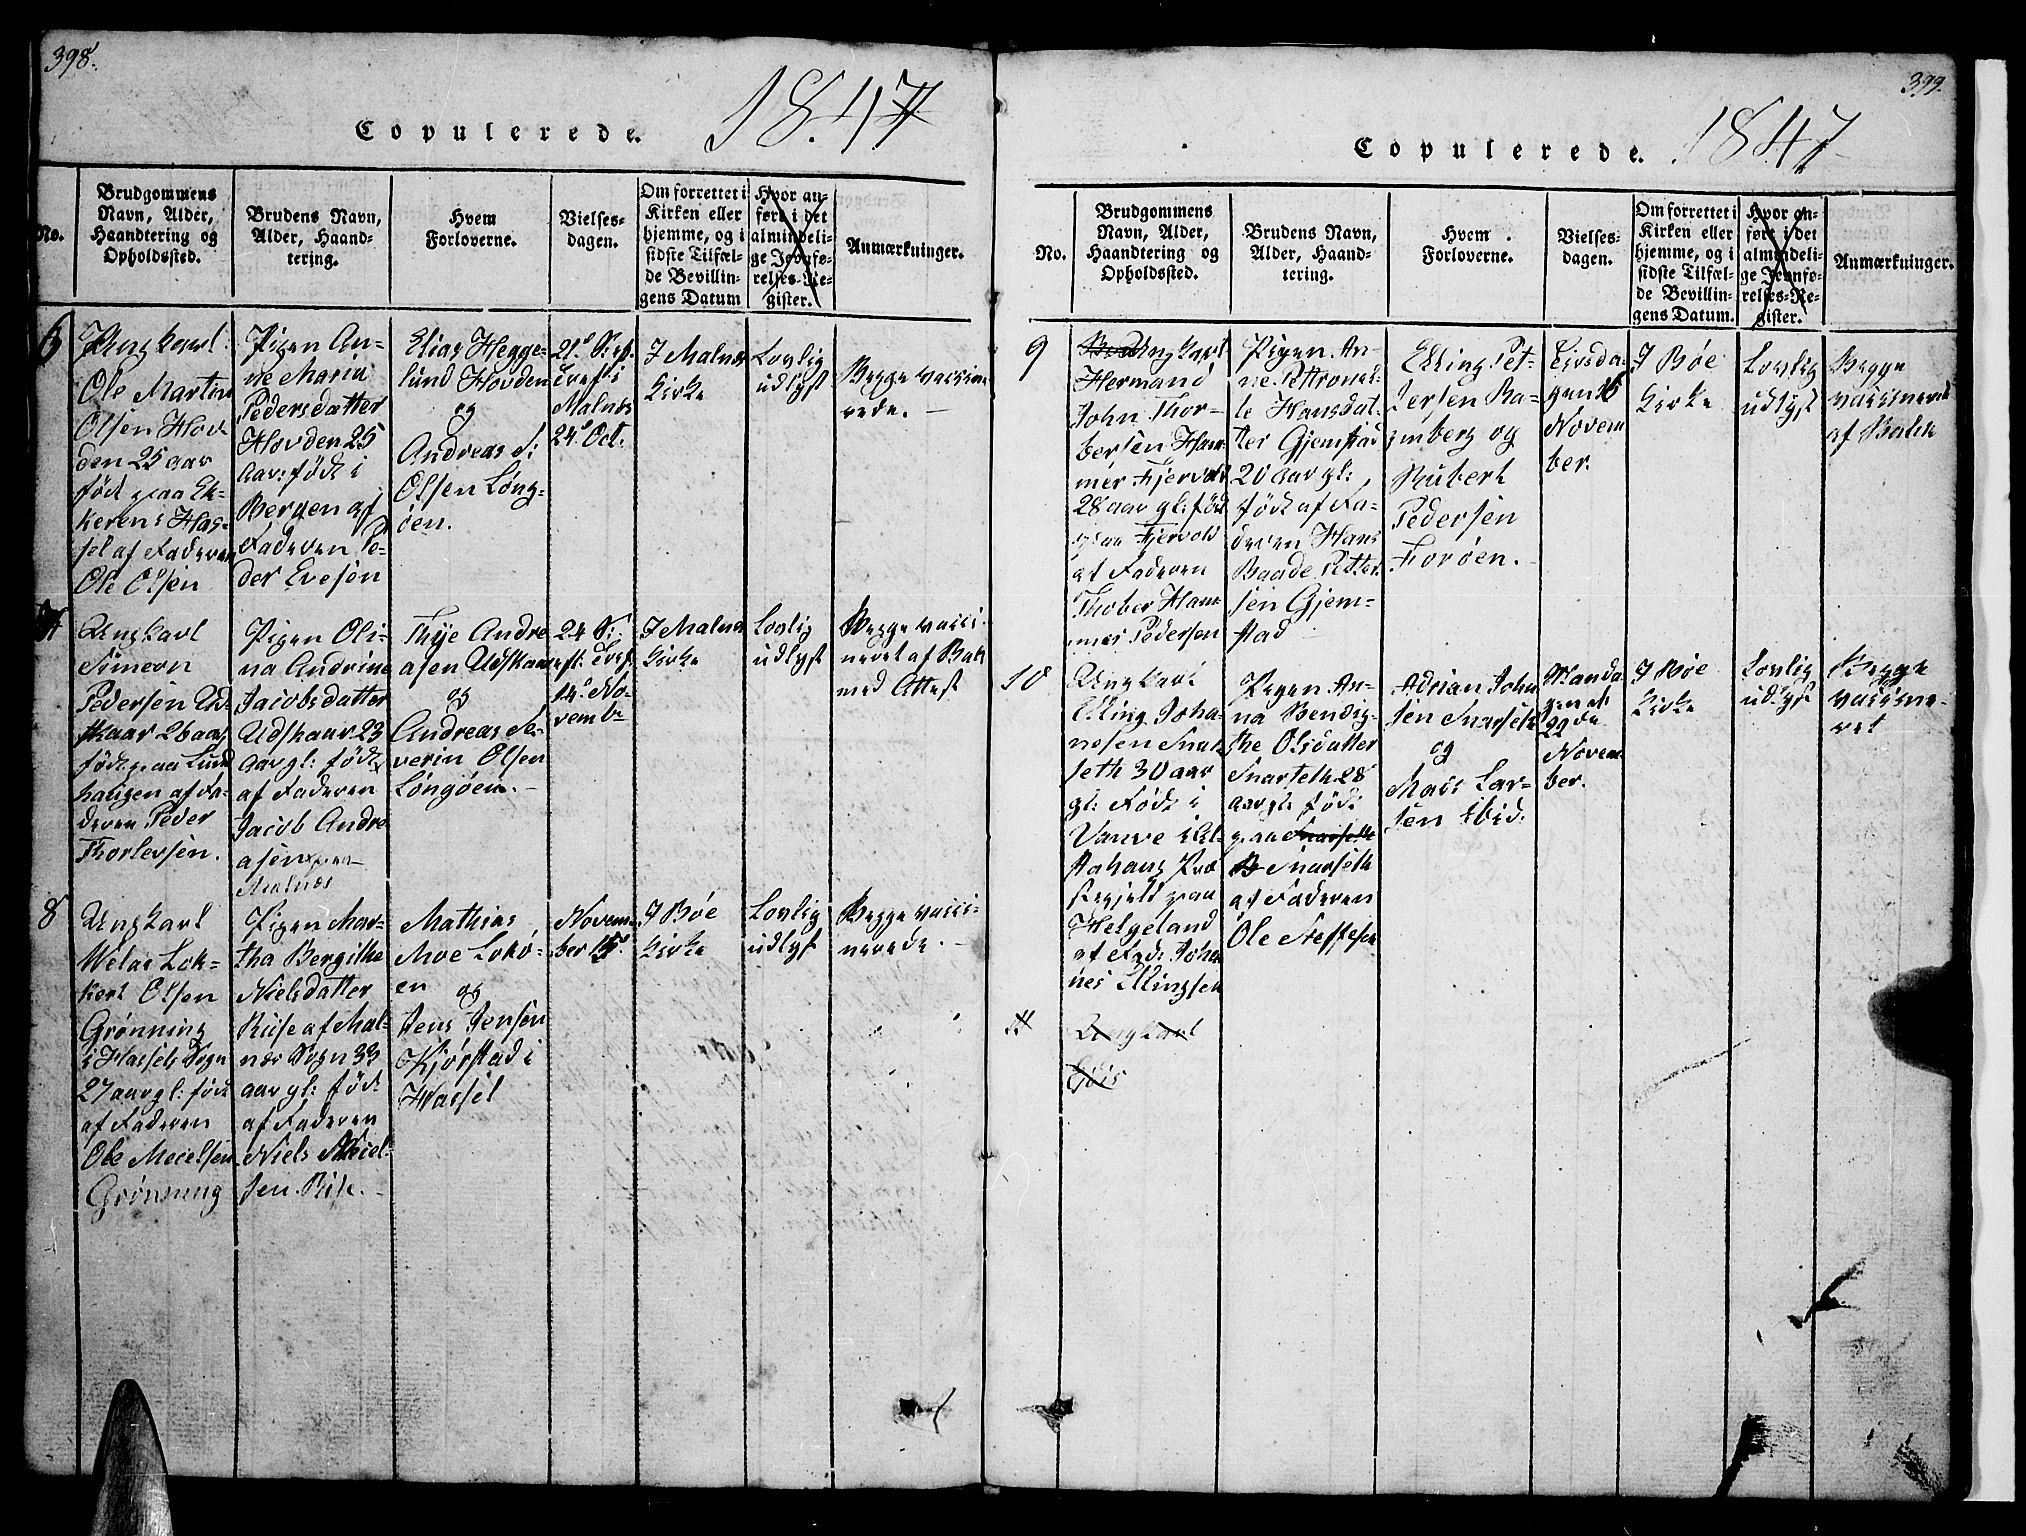 398.
Copulerede. 1847
No.
Brudgommens
Navn, Alder,
Haandtering og
Opholdssted.
Brudens Navn,
Alder, Haand-
tering.
Hvem
Forloverne.
Vielses-
dagen.
Om forrettet i
Kirken eller
hjemme, og i
sidste Tilfæl-
de Bevillin-
gens Datum
Hvor an-
ført i det
almindeli-
ge Jevnfø-
relses-Re-
gister.
Anmærkninger.
6
Ungkarl
Ole Martin
Olsen Hov-
den 25 aar
født paa Ek-
kerens Has-
sel af Faderen
Ole Olsen
Pigen An-
ne Maria
Pedersdatter
Hovden 25
aar: født i
Bergen af
Faderen Pe-
der Evesen
Elias Hegge-
lund Hovden
og
Andreas S:
Olsen Løng-
øen.
21de S: ef.
Tref. i
Malnes
24de Oct.
I Malnes
Kirke
Lovlig
udlyst
Begge vaccine-
rede. —
7
Ungkarl
Simeon
Pedersen Ud-
skaar 26 aar
født paa Lund
haugen af Fa-
deren Peder
Thorlevsen.
Pigen Oli-
na Andrine
Jacobsdatter
Udskaar 23
aar gl: født
af Faderen
Jacob Andre-
asen paa
Malnæs
Thye Andre
asen Udskaar
og
Andreas Se-
verin Olsen
Løngøen. —
24 S:
eft. Tref.
14de No-
vembr
I Malnes
Kirke
Lovlig
udlyst
Begge vacci-
neret af Bak
med Attest
8
Ungkarl
Welas Lok-
kert Olsen
Grønning
i Hassels Sogn
27 aar gl: født
af Faderen
Ole Mecelsen
Grønning
Pigen Mar-
tha Bergithe
Nielsdatter
Riise af Mal-
næs Sogn 33
aar gl: født
af Faderen
Niels Niel-
sen Riise. —
Mathias
Moe Lokø-
en og
Jens Jensen
Kjørstad i
Hassel
Novem-
ber 15de
I Bøe
Kirke
Lovlig
udlyst
Begge vacci-
nerede. —
399.
Copulerede. 1847
No.
Brudgommens
Navn, Alder,
Haandtering og
Opholdssted.
Brudens Navn,
Alder, Haand-
tering.
Hvem
Forloverne.
Vielses-
dagen.
Om forrettet i
Kirken eller
hjemme, og i
sidste Tilfæl-
de Bevillin-
gens Datum.
Hvor an-
ført i det
almindeli-
ge Jevnfø-
relses-Re-
gister.
Anmærkninger.
9
Ungkarl
Hermand
John Thor-
bersen Ham-
mer Fjervold
28 aar gl: født
paa Fjervold
af Faderen
Thober Ham-
mer Pedersen
Pigen An-
ne Pettronel-
le Hansdat-
ter Gjemstad
20 aar gl:
født af Fa-
deren Hans
Baade Petter
sen Gjem-
stad
Elling Pet-
tersen Ra-
mberg og
Rubert
Pedersen
Forøen.
Tirsda-
gen 16
Novem
ber.
I Bøe
Kirke
Lovlig
udlyst
Begge
vaccinered
af Bakk
10
Ungkarl
Elling Joha-
nesen Snar-
seth 30 aar
gl: Født i
Vanve i Al-
stahaug Præ
stegjeld paa
Helgeland
af Fad: Joha
nes Ellingsen
Pigen An-
na Bendig-
the Olsdatter
Snarseth 28
aar gl: født
paa Snarseth
Snarseth
af Faderen
Ole Steffesen
Adrian John
sen Snarseth
og
Mass Lar-
sen Ibid:
Manda
gen d:
22de
Novem-
ber.
I Bøe
Kirke
Lovlig
udlyst
Begge
vaccine-
ret
11
Ungkarl